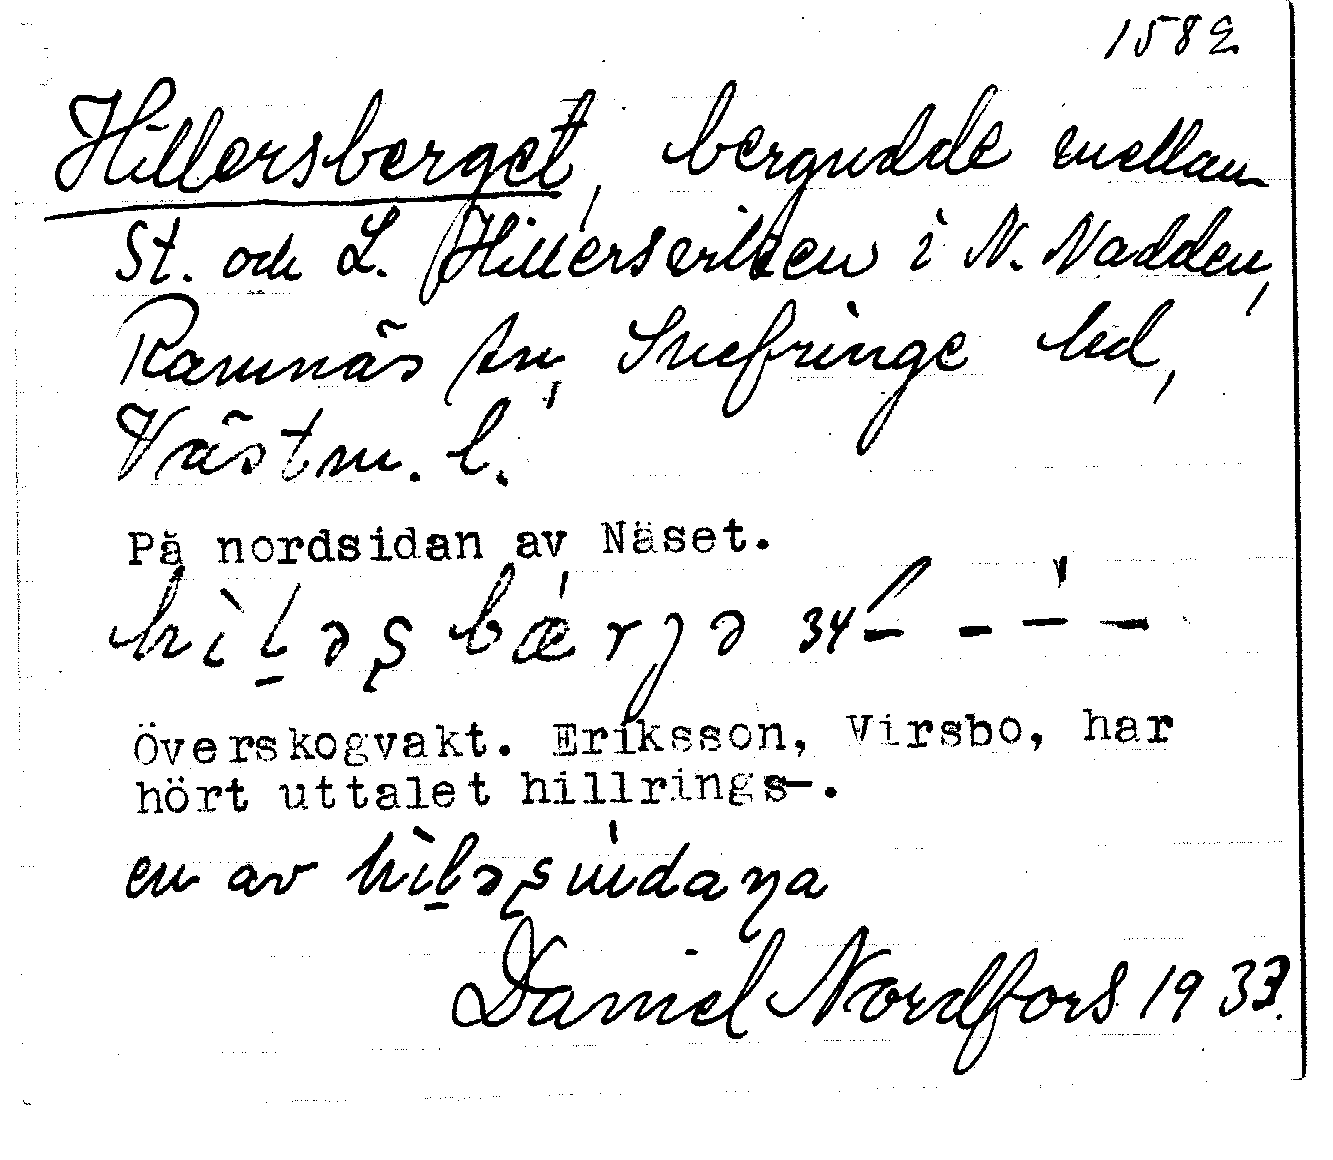 1582
Hillersberget, bergudde mellan
St. och L. Hillersviken i N. Nadden,
Ramnäs sn, Snefringe hd,
Västm. l.
På nordsidan av Näset.
hìḷəʂ bǽrjə 34
Överskogvakt. Eriksson, Virsbo, har
hört uttalet hillrings-.
en av
Daniel Nordfors 1933.